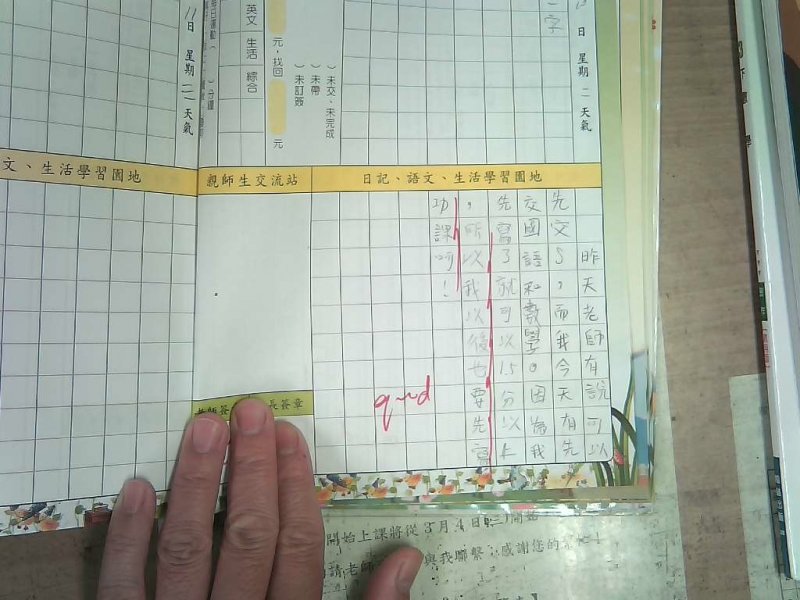 11日 星期二 天氣
英文 生活 綜合
元,找回 元
)未交、未完成
)未帶
)未訂簽
日 星期二 天氣
文、生活學習園地
親師生交流站
日記、語文、生活學習園地
昨天老師有說可以
先交S,而我今天有先
交國語和數學。因為我
先寫了就可以15分以上
,所以我以後也要先寫
功課呵!
good
長簽章
開始上課將從3月4日(二)開始
請老師
與我聯繫,感謝您的